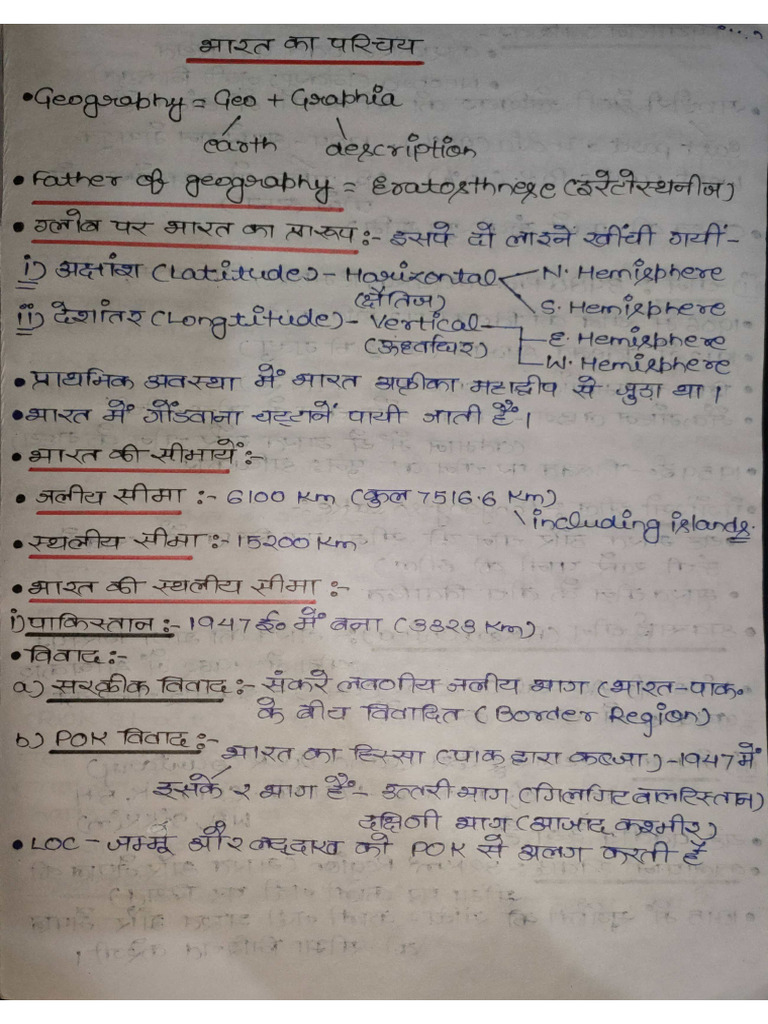 भारत का परिचय
•Geography = Geo + Graphia
earth description
• Father of geography = Eratosthnese (इरेटोस्थनीज)
• ग्लोब पर भारत का प्रारूप :- इसपे दो लाइने खींची गयीं-
i) अक्षांश (Latitude) - Harizontal N. Hemisphere
(क्षैतिज) S. Hemisphere
ii) देशांतर (Longtitude) - Vertical E. Hemisphere
(ऊर्ध्वाधर) W. Hemisphere
• प्राथमिक अवस्था में भारत अफ्रीका महाद्वीप से जुड़ा था।
•भारत में गोंडवाना चट्टानें पायी जाती हैं।
• भारत की सीमायें :-
• जलीय सीमा :- 6100 Km (कुल 7516.6 Km)
including islands.
• स्थलीय सीमा :- 15200 Km
• भारत की स्थलीय सीमा :-
i) पाकिस्तान :- 1947 ई० में बना (3323 Km)
• विवाद :-
a) सरक्रीक विवाद :- संकरे लवणीय जलीय भाग (भारत-पाक०
के बीच विवादित (Border Region)
b) POK विवाद :- भारत का हिस्सा (पाक द्वारा कब्जा) -1947 में
इसके 2 भाग हैं - उत्तरी भाग (गिलगिट बालटिस्तान)
दक्षिणी भाग (आजाद कश्मीर)
• LOC - जम्मू और लद्दाख को POK से अलग करती है